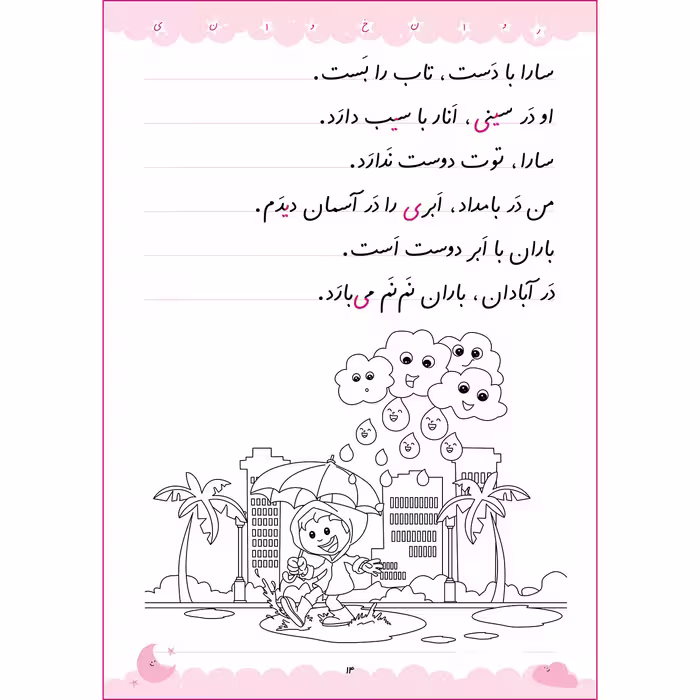 ر و ا ن خ و ا ن ی
سارا با دَست، تاب را بَست.
او دَر سینی، اَنار با سیب دارَد.
سارا، توت دوست نَدارَد.
مَن دَر بامداد، اَبری را دَر آسمان دیدَم.
باران با اَبر دوست اَست.
دَر آبادان، باران نَم‌نَم می‌بارَد.
۱۴